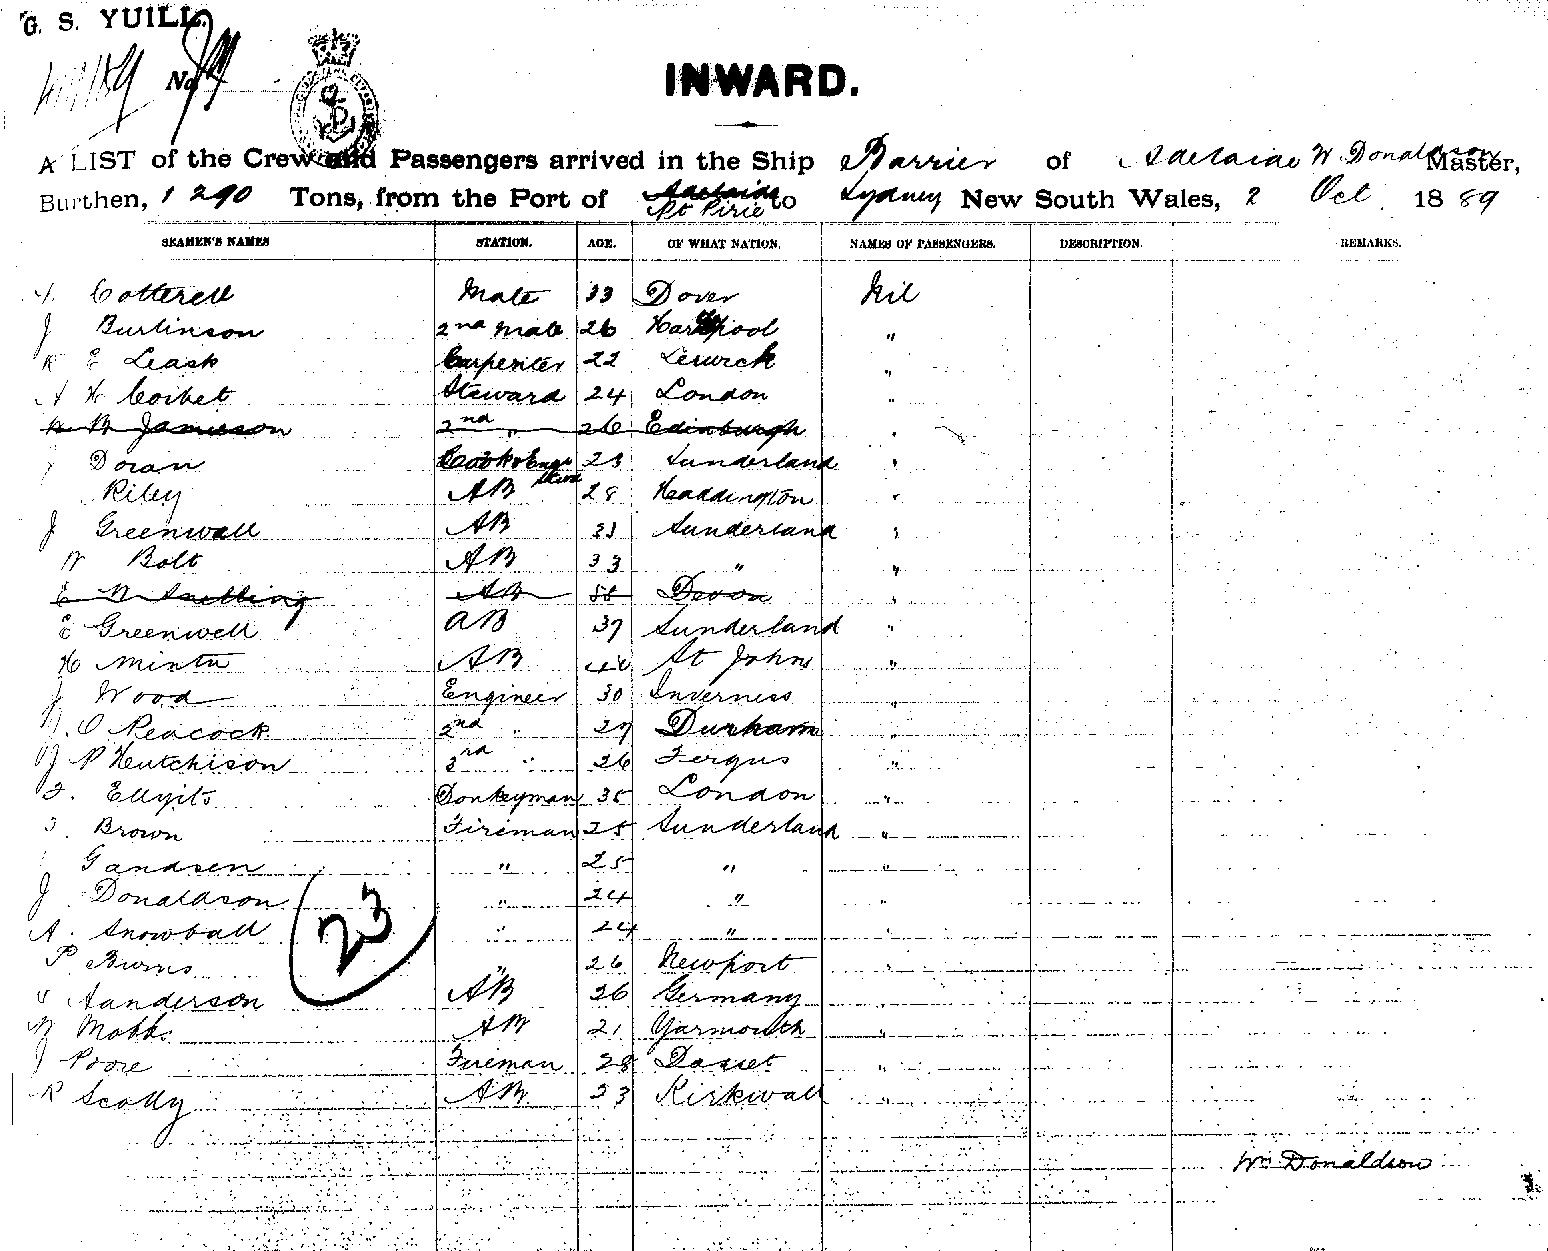 G. S. YUILL.
No
INWARD.
A LIST of the Crew and Passengers arrived in the Ship Barrier of Adelaide W Donaldson Master,
Burthen, 1290 Tons, from the Port of Adelaide Pt Pirie to Sydney New South Wales, 2 Oct 1889
SEAMEN'S NAMES STATION. AGE. OF WHAT NATION. NAMES OF PASSENGERS. DESCRIPTION. REMARKS.
Cotterell Mate 33 Dover Nil
J Burlinson 2nd Mate 26 Hartlepool "
R E Leask Carpenter 22 Lerwick "
A H Corbet Steward 24 London "
W Jamieson 2nd " 26 Edinburgh "
Doran Cook & 23 Sunderland "
Riley AB 28 Haddington "
J Greenwell AB Sunderland "
W Bolt AB 33 " "
E Snelling AB Devon "
E Greenwell AB 37 Sunderland "
H AB St Johns "
J Wood Engineer 30 Inverness "
O Peacock 2nd " 27 Durham "
J P Hutchison 3rd " 26 Fergus "
Donkeyman 35 London "
Brown Fireman 25 Sunderland "
Gandsen " 25 " "
J Donaldson " 24 " "
A. Snowball " 24 " "
P Burns " 26 Newport "
Sanderson AB 26 Germany "
Mobbs AB 21 Yarmouth "
J Poore Fireman 28 "
R Scolly AB 23 Kirkwall "
23
Wm Donaldson